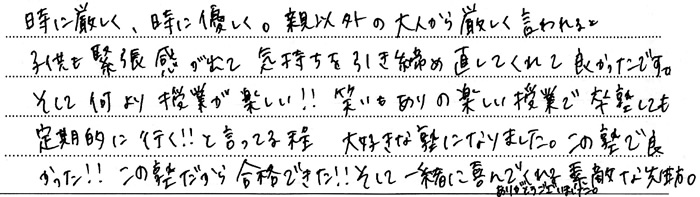 時に厳しく、時に優しく。親以外の大人から厳しく言われると
子供も緊張感が出て 気持ちを引き締め直してくれて良かったです。
そして何より授業が楽しい!! 笑いもありの楽しい授業で卒塾しても
定期的に行く!!と言ってる程 大好きな塾になりました。この塾で良
かった!! この塾だから合格できた!!そして一緒に喜んでくれる素敵な先生方。
ありがとうございました。